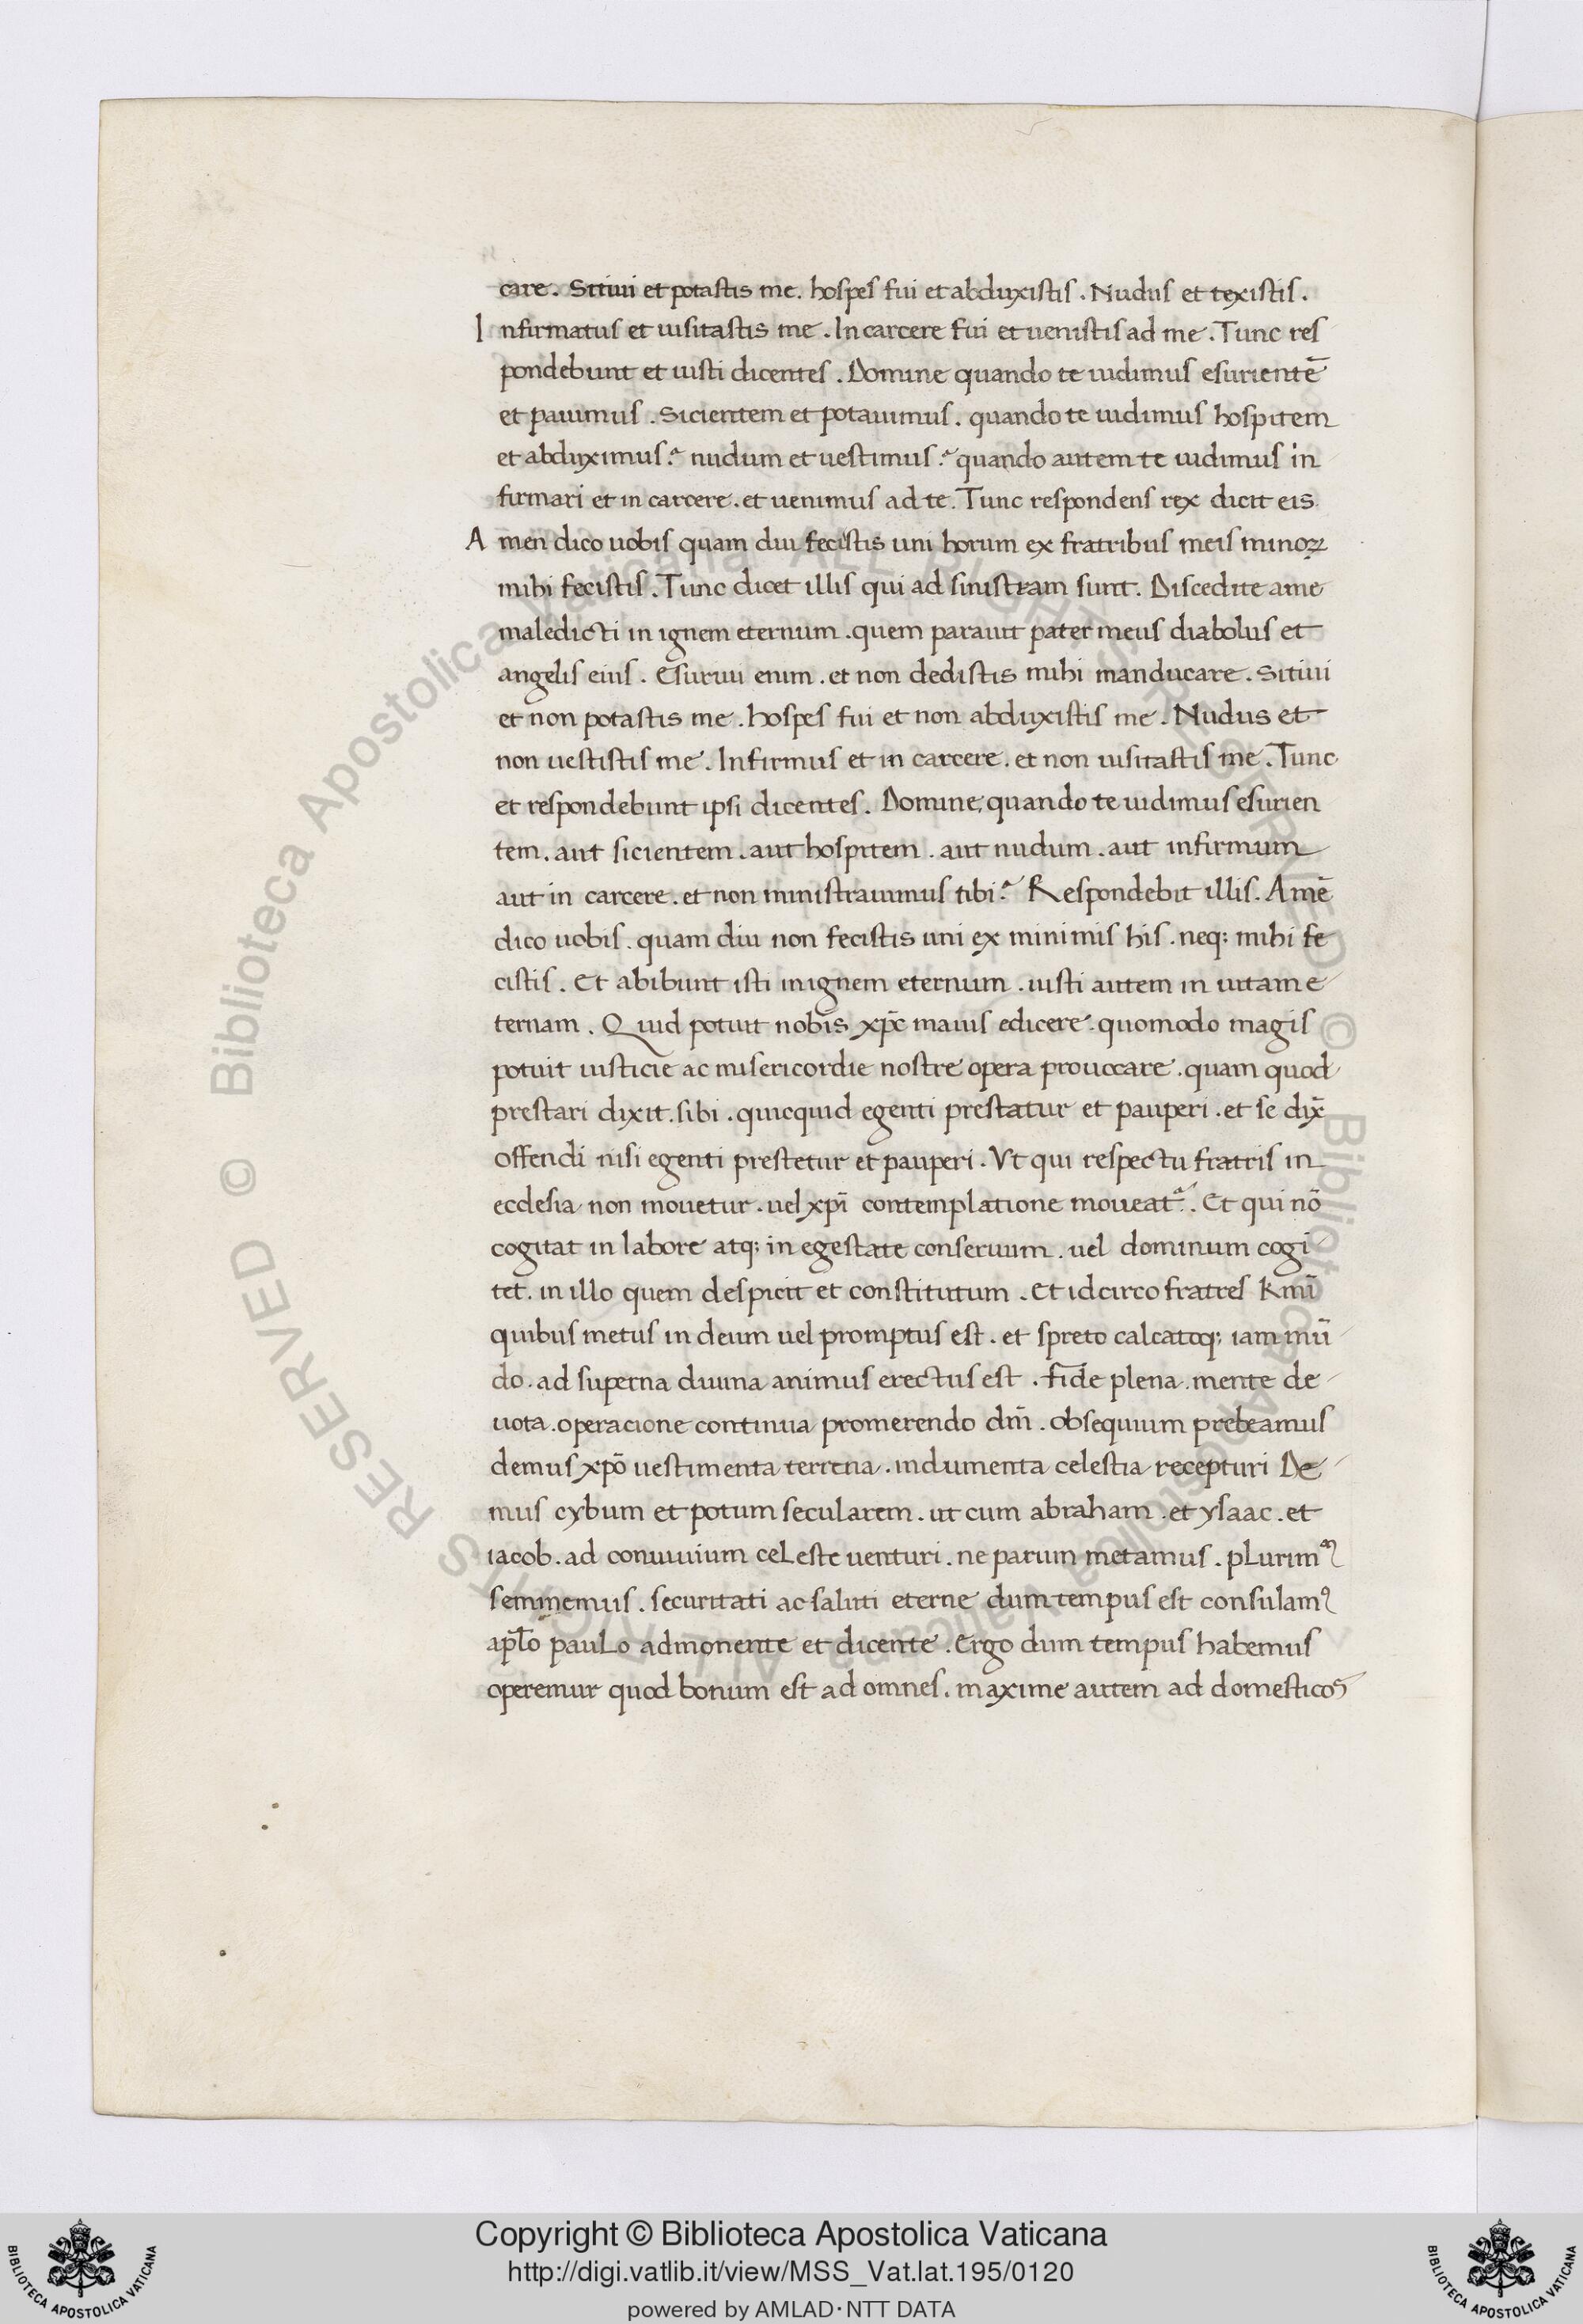 care. Sitiui et potastis me. hospes fui et abduxistis. Nudus et texistis.
Infirmatus et uisitastis me. In carcere fui et uenistis ad me. Tunc res
pondebunt et iusti dicentes. Domine quando te uidimus esurientē
et pauimus. Sicientem et potauimus. quando te uidimus hospitem
et abduximus? nudum et uestimus? quando autem te uidimus in
firmari et in carcere. et uenimus ad te. Tunc respondens rex dicit eis.
Amen dico uobis quam diu fecistis uni horum ex fratribus meis minoꝝ
mihi fecistis. Tunc dicet illis qui ad sinistram sunt. Discedite a me
maledicti in ignem eternum. quem parauit pater meus diabolus et
angelis eius. Esuriui enim. et non dedistis mihi manducare. Sitiui
et non potastis me. hospes fui et non abduxistis me. Nudus et
non uestistis me. Infirmus et in carcere. et non uisitastis me. Tunc
et respondebunt ipsi dicentes. Domine quando te uidimus esurien
tem. aut sicientem. aut hospitem. aut nudum. aut infirmum
aut in carcere. et non ministrauimus tibi? Respondebit illis. Amē
dico uobis. quam diu non fecistis uni ex minimis his. neq; mihi fe
cistis. Et abibunt isti in ignem eternum. iusti autem in uitam e
ternam. Quid potuit nobis xp̄c maius edicere. quomodo magis
potuit iusticie ac misericordie nostre opera prouocare. quam quod
prestari dixit. sibi. quicquid egenti prestatur et pauperi. et se dix̄
offendi nisi egenti prestetur et pauperi. Vt qui respectu fratris in
ecclesia non mouetur. uel xp̄i contemplatione moueat᷑. Et qui nō
cogitat in labore atq; in egestate conseruum. uel dominum cogi
tet. in illo quem despicit et constitutum. Et idcirco fratres kmī
quibus metus in deum uel promptus est. et spreto calcatoq; iam mū
do. ad superna diuina animus erectus est. fide plena. mente de
uota. operacione continua promerendo dm̄. obsequium prebeamus
demus xp̄o uestimenta terrena. indumenta celestia recepturi De
mus cybum et potum secularem. ut cum abraham. et ysaac. et
iacob. ad conuiuium celeste uenturi. ne parum metamus. plurimꝰ
seminemus. securitati ac saluti eterne dum tempus est consulamꝰ
apl̄o paulo admonente et dicente. Ergo dum tempus habemus
operemur quod bonum est ad omnes. maxime autem ad domesticos
Copyright © Biblioteca Apostolica Vaticana
http://digi.vatlib.it/view/MSS_Vat.lat.195/0120
powered by AMLAD·NTT DATA